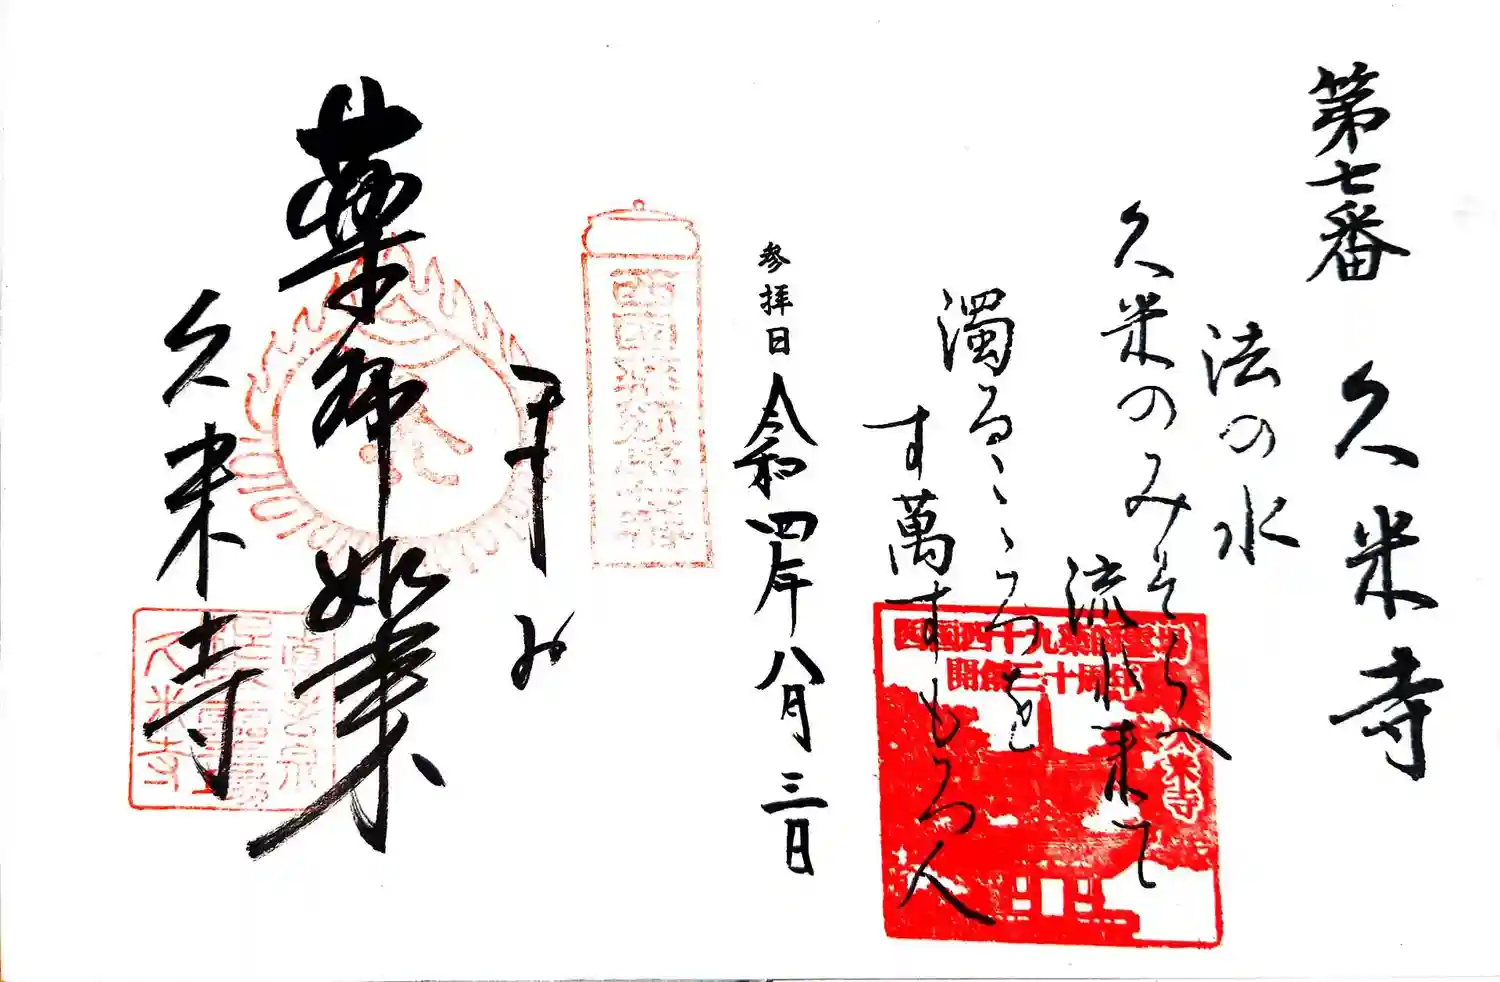 第七番 久米寺
法の水
久米のみそらへ
流れ来て
濁るこころを
す萬すもろ人
参拝日 令和四年八月三日
西国薬師第七番
奉拝
薬師如来
久米寺
西国四十九薬師霊場
開創三十周年
久米寺
久米寺